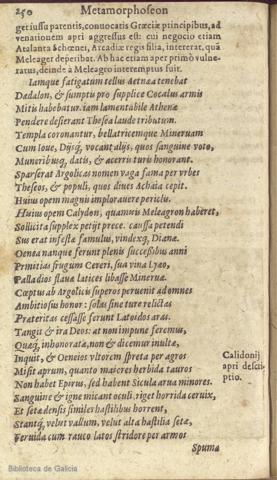 250 Metamorphoseon
get iussu parentis, conuocatis Græciæ principibus, ad
venationem apri aggressus est: cui negocio etiam
Atalanta Schœnei, Arcadiæ regis filia, intererat, quã
Meleager deperibat. Ab hac etiam aper primò vulne-
ratus, deinde à Meleagro interemptus fuit.
Iamque fatigatum tellus Aetnæa tenebat
Dædalon, & sumptu pro supplice Cocalus armis
Mitis habebatur. iam lamentabile Athenæ
Pendere desierant Thesea laude tributum.
Templa coronantur, bellatricemque Mineruam
Cum Ioue, Dijsq́; vocant alijs, quos sanguine voto,
Muneribusq́; datis, & acerris turis honorant.
Sparserat Argolicas nomen vaga fama per vrbes
Theseos, & populi, quos diues Achaia cepit.
Huius opem magnis implorauere periclis.
Huius opem Calydon, quamuis Meleagron haberet,
Sollicita supplex petijt prece. caussa petendi
Sus erat infestæ famulus, vindexq́; Dianæ.
Oenea nanque ferunt plenis successibus anni
Primitias frugum Cereri, sua vina Lyæo,
Palladios flauæ latices libasse Mineruæ.
Cœptus ab Agricolis superos peruenit ad omnes
Ambitiosus honor: solas sine ture relictas
Præteritæ cessasse ferunt Latoidos aras.
Tangit & ira Deos: at non impune feremus,
Quæq́; inhonoratæ, non & dicemur inultæ,
Inquit, & Oeneios vltorem spreta per agros
Misit aprum, quanto maiores herbida tauros
Non habet Epirus, sed habent Sicula arua minores.
Calidonij
apri descri-
ptio.
Sanguine & igne micant oculi, riget horrida ceruix,
Et setæ densis similes hastilibus horrent,
Stantq́; velut vallum, velut alta hastilia setæ,
Feruida cum rauco latos stridore per armos
Spuma
Biblioteca de Galicia